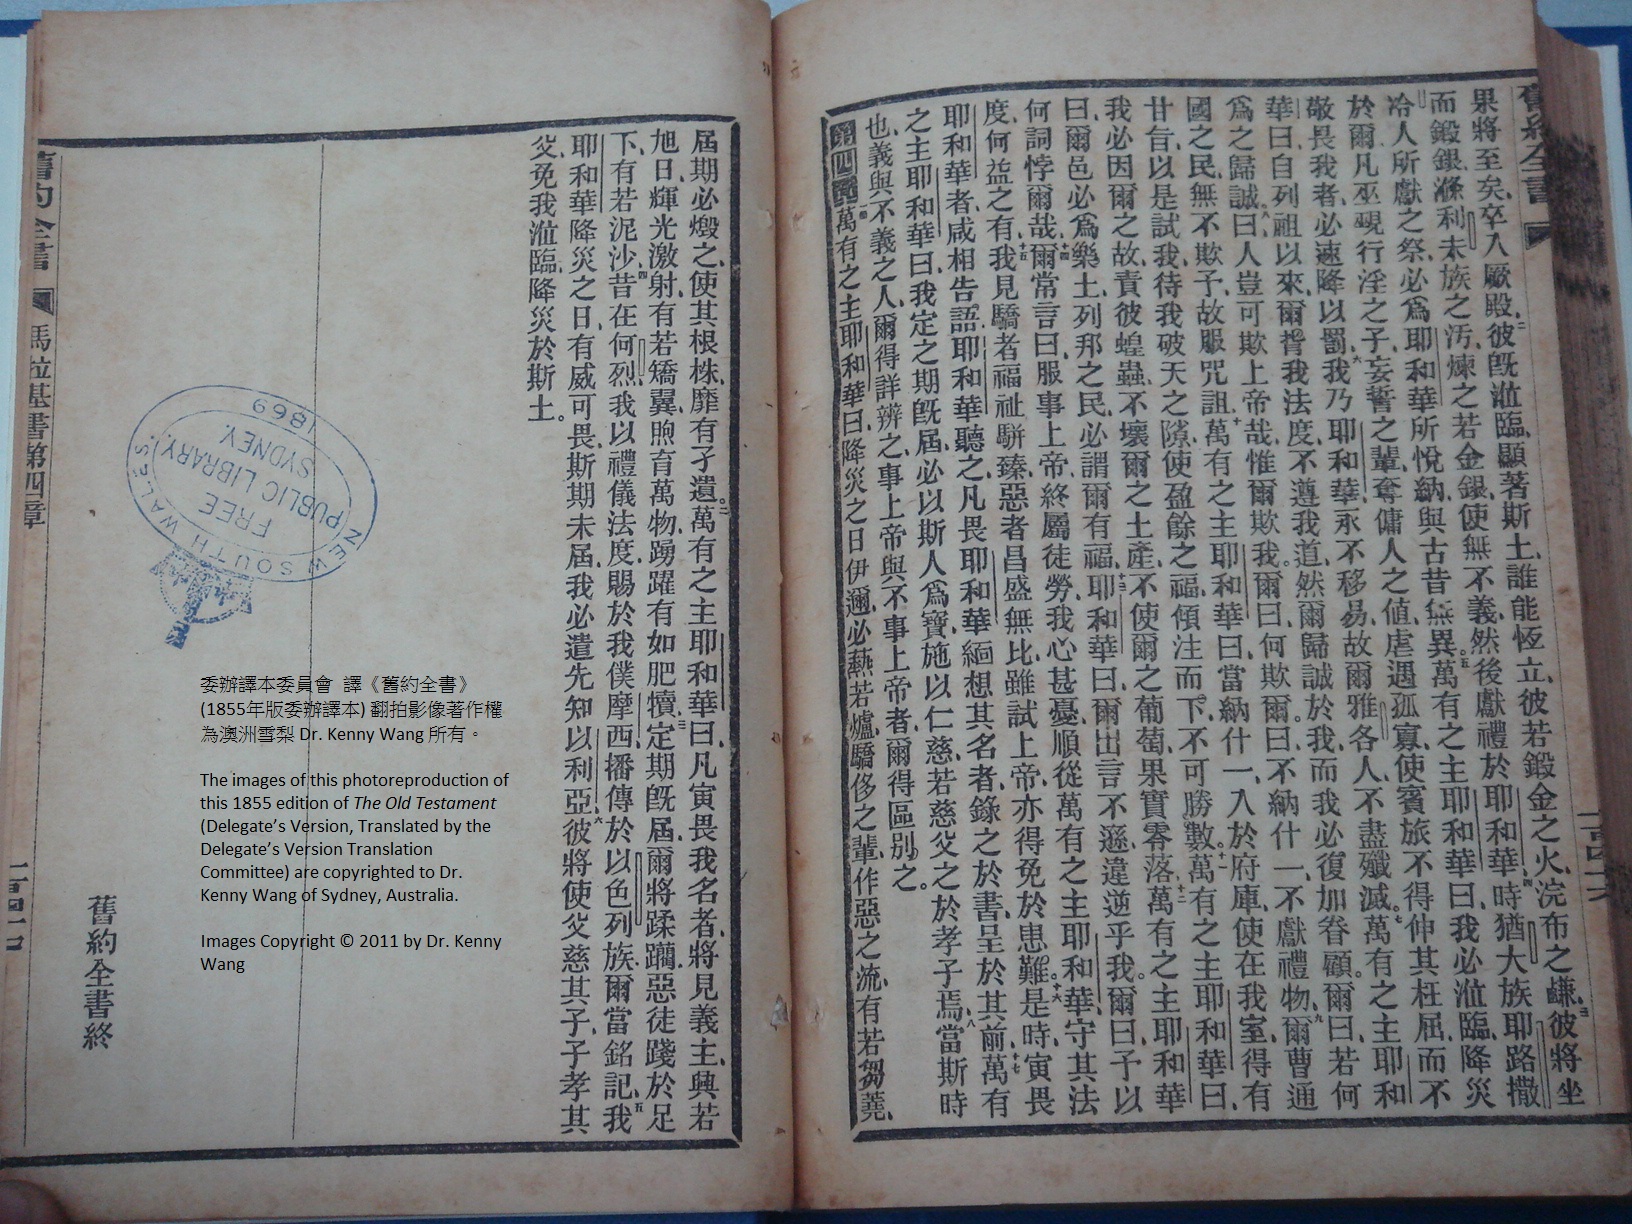 舊約全書
果將至矣、卒入厥殿、彼旣涖臨、顯著斯土、誰能恆立、彼若鍛金之火、浣布之鹻、三彼將坐
而鍛銀、滌利未族之汚、煉之若金銀、使無不義、然後獻禮於耶和華、四時猶大族耶路撒
冷人所獻之祭、必爲耶和華所悅納、與古昔無異。五萬有之主耶和華曰、我必涖臨、降災
於爾、凡巫覡行淫之子、妄誓之輩、奪傭人之值、虐遇孤寡、使賓旅不得伸其枉屈、而不
敬畏我者、必速降以罰、六我乃耶和華、永不移易、故爾雅各人、不盡殲滅。七萬有之主耶和
華曰、自列祖以來、爾胥我法度、不遵我道、然爾歸誠於我、而我必復加眷顧。爾曰、若何
爲之歸誠、八曰、人豈可欺上帝哉、惟爾欺我。爾曰、何欺爾。曰、不納什一、不獻禮物、九爾曹通
國之民、無不欺予、故服咒詛、十萬有之主耶和華曰、當納什一、入於府庫、使在我室、得有
甘旨、以是試我、待我破天之隙、使盈餘之福、傾注而下、不可勝數、十一萬有之主耶和華曰、
我必因爾之故、責彼蝗蟲、不壞爾之土產、不使爾之葡萄果實零落、十二萬有之主耶和華
曰、爾邑必爲樂土、列邦之民、必謂爾有福、十三耶和華曰、爾出言不遜、違逆乎我。爾曰、予以
何詞悖爾哉、十四爾常言曰、服事上帝、終屬徒勞、我心甚憂、順從萬有之主耶和華、守其法
度、何益之有、十五我見驕者福祉駢臻、惡者昌盛無比、雖試上帝、亦得免於患難。十六是時寅畏
耶和華者、咸相告語、耶和華聽之、凡畏耶和華、緬想其名者、錄之於書、呈於其前、十七萬有
之主耶和華曰、我定之期旣屆、必以斯人爲寶、施以仁慈、若慈父之於孝子焉、十八當斯時
也、義與不義之人、爾得詳辨之、事上帝與不事上帝者、爾得區別之。
第四章 一萬有之主耶和華曰、降災之日伊邇、必爇若爐、驕侈之輩、作惡之流、有若芻蕘、
屆期必燬之、使其根株、靡有孑遺。二萬有之主耶和華曰、凡寅畏我名者、將見義主、興若
旭日、輝光激射、有若矯翼、煦育萬物、踴躍有如肥犢、三定期旣屆、爾將蹂躪惡徒、踐於足
下、有若泥沙、四昔在何烈、我以禮儀法度、賜於我僕摩西、播傳於以色列族、爾當銘記、五我
耶和華降災之日、有威可畏、斯期未屆、我必遣先知以利亞、六彼將使父慈其子、子孝其
父、免我涖臨、降災於斯土。
舊約全書終
舊約全書 瑪拉基書第四章
NEW SOUTH WALES.
FREE
PUBLIC LIBRARY,
SYDNEY.
1869
委辦譯本委員會 譯《舊約全書》
(1855年版委辦譯本) 翻拍影像著作權
為澳洲雪梨 Dr. Kenny Wang 所有。
The images of this photoreproduction of
this 1855 edition of The Old Testament
(Delegate's Version, Translated by the
Delegate's Version Translation
Committee) are copyrighted to Dr.
Kenny Wang of Sydney, Australia.
Images Copyright © 2011 by Dr. Kenny
Wang